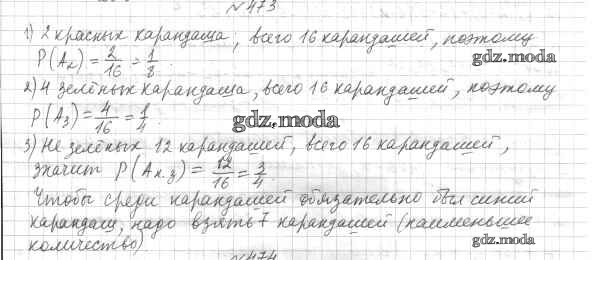 №473
1) 2 красных карандаша, всего 16 карандашей, поэтому
P(A₂) = 2/16 = 1/8.
gdz.moda
2) 4 зелёных карандаша, всего 16 карандашей, поэтому
P(A₃) = 4/16 = 1/4.
gdz.moda
3) Не зелёных 12 карандашей, всего 16 карандашей,
значит P(Aн.з) = 12/16 = 3/4.
Чтобы среди карандашей обязательно был синий
карандаш, надо взять 7 карандашей (наименьшее
количество)
gdz.moda
№474